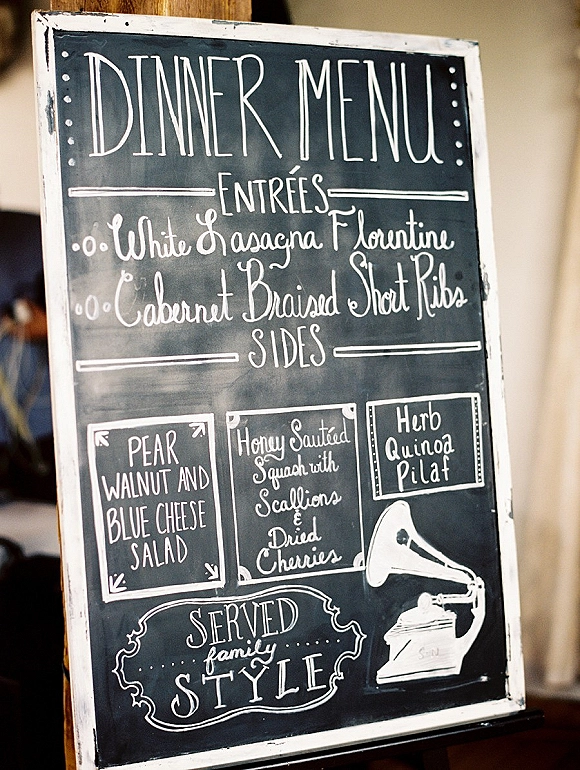 DINNER MENU
ENTRÉES
White Lasagna Florentine
Cabernet Braised Short Ribs
SIDES
PEAR
WALNUT AND
BLUE CHEESE
SALAD
Honey Sautéed
Squash with
Scallions
&
Dried
Cherries
Herb
Quinoa
Pilaf
SERVED
family
STYLE